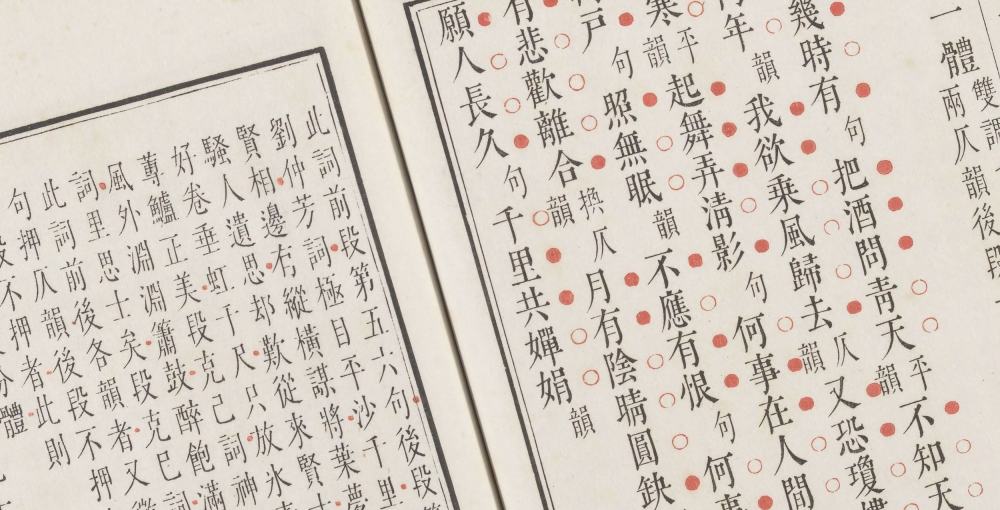 一體
雙調
兩仄韻後段
幾時有句把酒問靑天平韻不知天
年韻我欲乘風歸去仄韻又恐瓊
寒平韻起舞弄淸影句何事在人間
戶句照無眠韻不應有恨句何事
有悲歡離合換仄韻月有陰晴圓缺
願人長久句千里共嬋娟韻
此詞前段第五六句後段
劉仲芳詞極目平沙千里
賢相邊有縱橫謀將葉夢
騷人遺思却歎從來賢
好卷垂虹千尺只放氷
蓴鱸正美段克己詞神
風外淵淵簫鼓醉飽滿
詞里思士矣段克己詞
此詞前後各韻者又
句押仄韻後段不押
段不押者此則
體